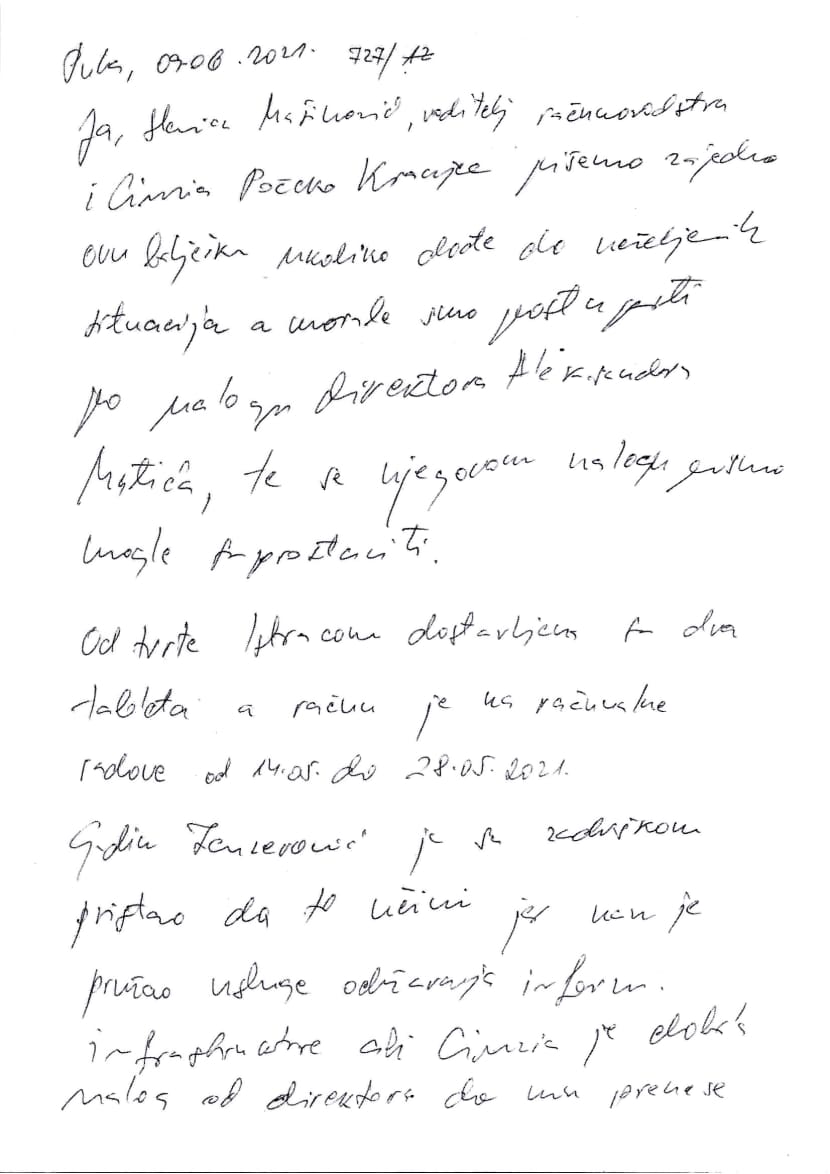 Pula, 09.06.2021. 727/AZ
Ja, Slavica Mažihović, voditelj računovodstva
i Cinzia Počeko Kranjce pišemo zajedno
ovu bilješku ukoliko dođe do neželjenih
situacija a morale smo postupiti
po nalogu direktora Aleksandra
Matića, te se njegovom nalogu nismo
mogle suprostaviti.
Od tvrtke Istracom dostavljena su dva
tableta a račun je na računalne
radove od 14.05. do 28.05.2021.
G-din je sa zadrškom
pristao da to učini jer nam je
pružao usluge održavanja inform.
infrastrukture ali Cinzia je dobila
nalog od direktora da mu prenese